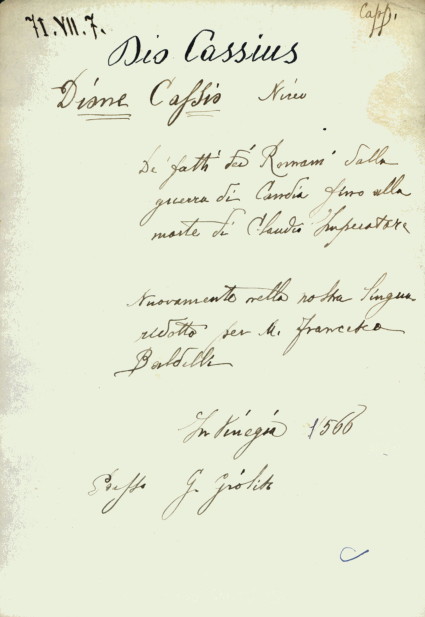 71.VII.7.
Capp.
Dio Cassius
Dione Cassio Niceo
De' fatti dei Romani dalla
guerra di Candia fino alla
morte di Claudio Imperatore
Nuovamente nella nostra lingua
ridotto per M. Francesco
Baldelli
In Vinegia 1566
Presso G. Giolito